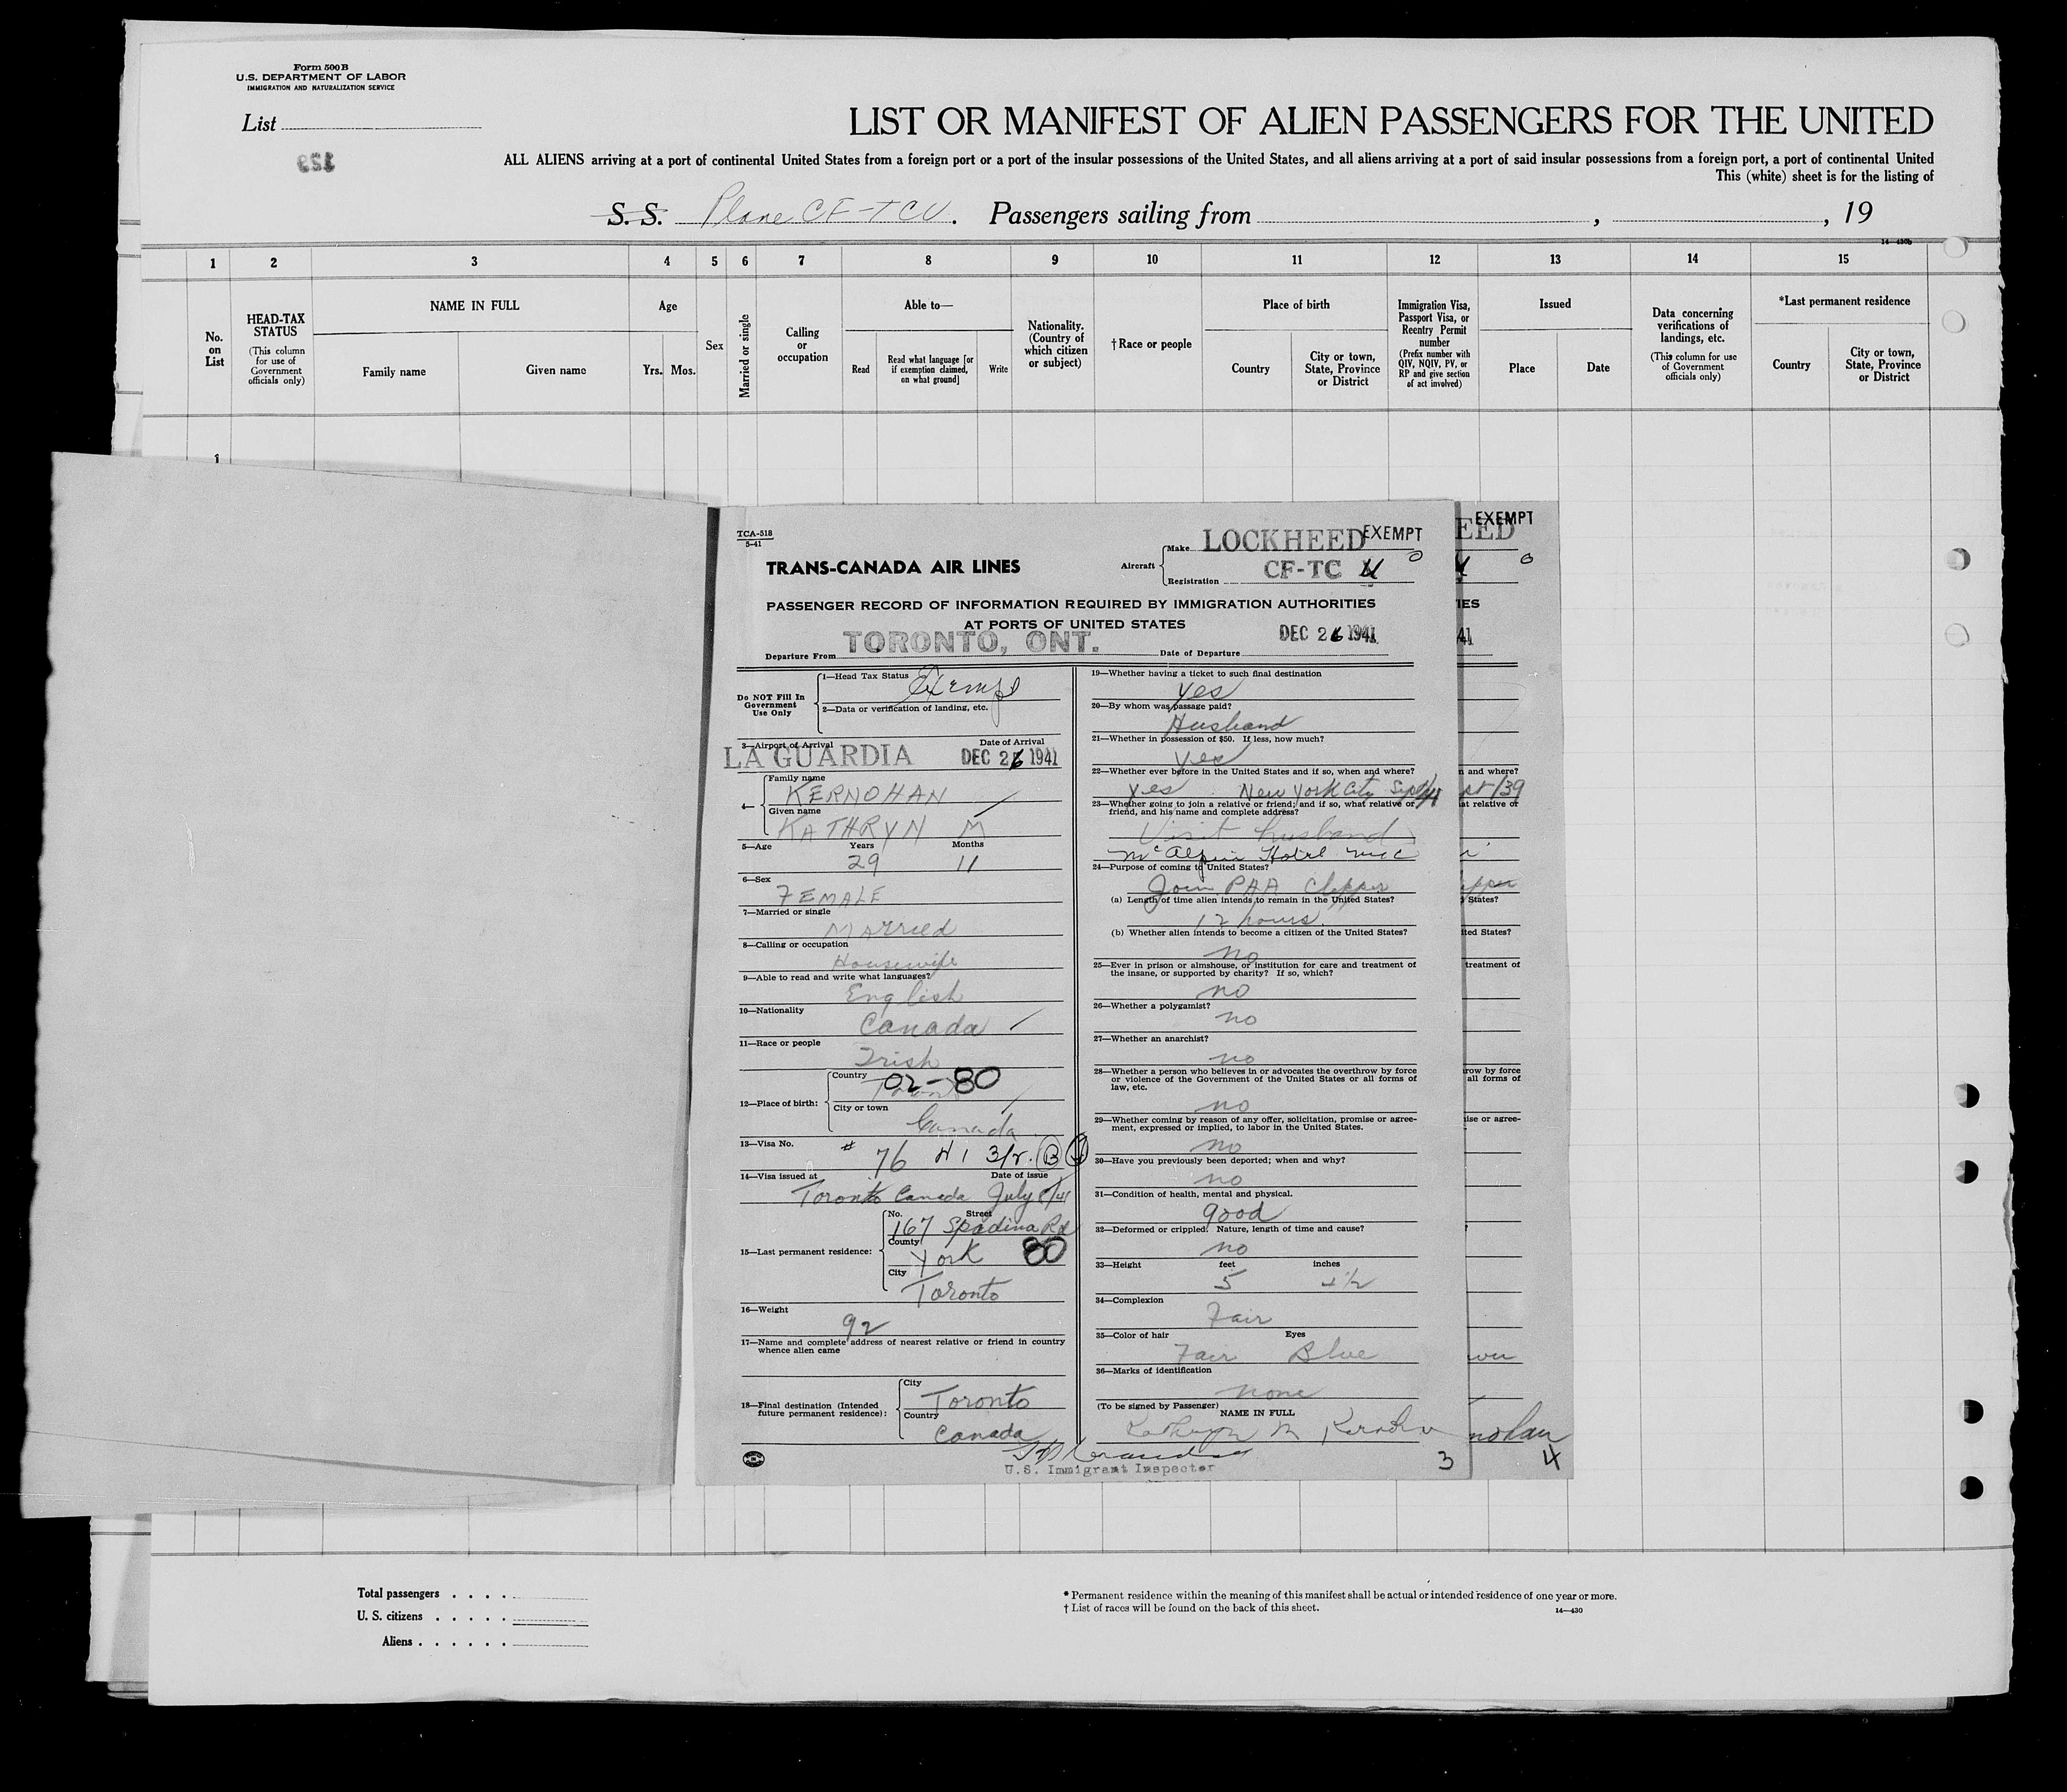 Form 500 B
U.S. DEPARTMENT OF LABOR
IMMIGRATION AND NATURALIZATION SERVICE
List
LIST OR MANIFEST OF ALIEN PASSENGERS FOR THE UNITED
ALL ALIENS arriving at a port of continental United States from a foreign port or a port of the insular possessions of the United States, and all aliens arriving at a port of said insular possessions from a foreign port, a port of continental United
This (white) sheet is for the listing of
S. S. Plane CF-TCU. Passengers sailing from , , 19
14—430b
1 2 3 4 5 6 7 8 9 10 11 12 13 14 15
No. on List
HEAD-TAX STATUS (This column for use of Government officials only)
NAME IN FULL
Family name Given name
Age
Yrs. Mos.
Sex
Married or single
Calling or occupation
Able to—
Read Read what language [or if exemption claimed, on what ground] Write
Nationality. (Country of which citizen or subject)
†Race or people
Place of birth
Country City or town, State, Province or District
Immigration Visa, Passport Visa, or Reentry Permit number (Prefix number with QIV, NQIV, PV, or RP and give section of act involved)
Issued
Place Date
Data concerning verifications of landings, etc. (This column for use of Government officials only)
*Last permanent residence
Country City or town, State, Province or District
1
TCA-518
5-41
TRANS-CANADA AIR LINES
Aircraft Make LOCKHEED EXEMPT
Registration CF-TC U
PASSENGER RECORD OF INFORMATION REQUIRED BY IMMIGRATION AUTHORITIES
AT PORTS OF UNITED STATES
Departure From TORONTO, ONT. Date of Departure DEC 26 1941
Do NOT Fill In Government Use Only
1—Head Tax Status Exempt
2—Data or verification of landing, etc.
3—Airport of Arrival Date of Arrival
LA GUARDIA DEC 26 1941
4— Family name
KERNOHAN
Given name
KATHRYN M
5—Age Years Months
29 11
6—Sex
FEMALE
7—Married or single
Married
8—Calling or occupation
Housewife
9—Able to read and write what languages?
English
10—Nationality
Canada
11—Race or people
Irish
12—Place of birth: Country
02-80
City or town
Canada
13—Visa No. # 76 3/r. B
14—Visa issued at Date of issue
Toronto Canada July /41
15—Last permanent residence: No. Street
167 Spadina Rd
County
York 80
City
Toronto
16—Weight
92
17—Name and complete address of nearest relative or friend in country
whence alien came
18—Final destination (Intended future permanent residence): City
Toronto
Country
Canada
19—Whether having a ticket to such final destination
yes
20—By whom was passage paid?
Husband
21—Whether in possession of $50. If less, how much?
yes
22—Whether ever before in the United States and if so, when and where?
yes New York City Sept/41
23—Whether going to join a relative or friend; and if so, what relative or
friend, and his name and complete address?
Visit husband
McAlpin Hotel NYC
24—Purpose of coming to United States?
Join PAA Clipper
(a) Length of time alien intends to remain in the United States?
12 hours.
(b) Whether alien intends to become a citizen of the United States?
no
25—Ever in prison or almshouse, or institution for care and treatment of
the insane, or supported by charity? If so, which?
no
26—Whether a polygamist?
no
27—Whether an anarchist?
no
28—Whether a person who believes in or advocates the overthrow by force
or violence of the Government of the United States or all forms of
law, etc.
no
29—Whether coming by reason of any offer, solicitation, promise or agree-
ment, expressed or implied, to labor in the United States.
no
30—Have you previously been deported; when and why?
no
31—Condition of health, mental and physical.
good
32—Deformed or crippled. Nature, length of time and cause?
no
33—Height feet inches
5 4½
34—Complexion
Fair
35—Color of hair Eyes
Fair Blue
36—Marks of identification
none
(To be signed by Passenger)
NAME IN FULL
Kathryn M Kernohan
U.S. Immigrant Inspector
3
EED EXEMPT
IES
41
n and where?
pt/39
at relative or
ipper
States?
ted States?
treatment of
row by force
all forms of
ise or agree-
nohan
4
Total passengers
U. S. citizens
Aliens
* Permanent residence within the meaning of this manifest shall be actual or intended residence of one year or more.
† List of races will be found on the back of this sheet.
14—430